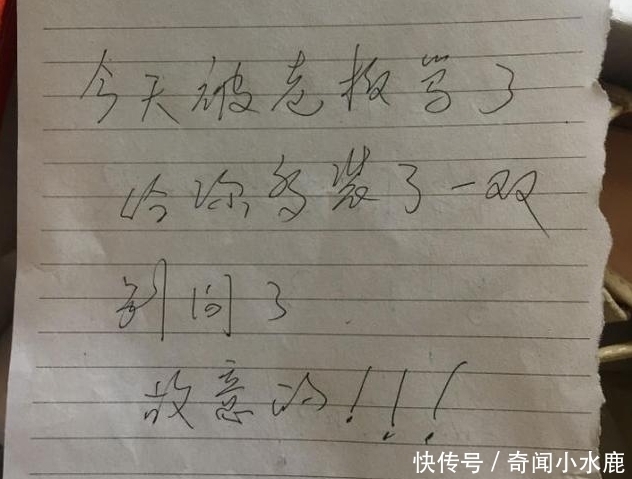 今天被老板骂了
给你多装了一双
别问了
故意的!!!
快传号/奇闻小水鹿